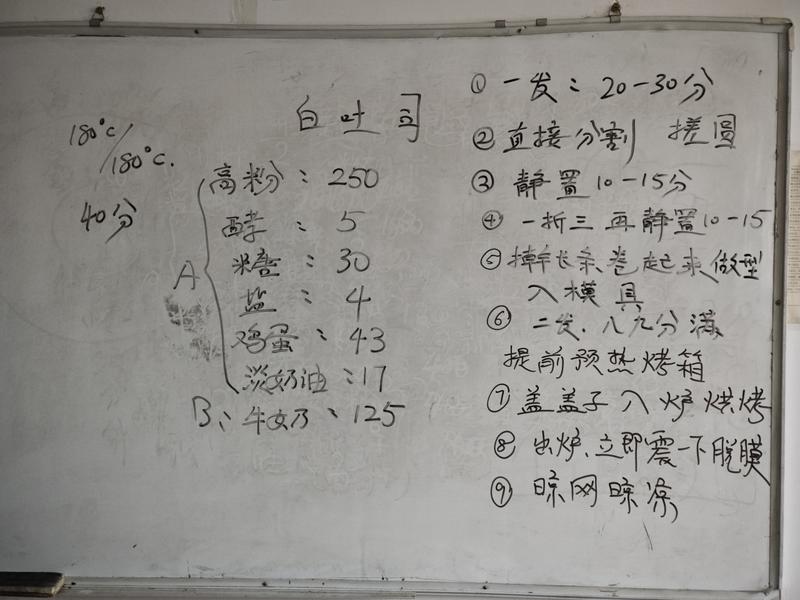 白吐司
180°c/180°c.
40分
A
高粉：250
酵：5
糖：30
盐：4
鸡蛋：43
淡奶油：17
B、牛奶：125
① 一发：20-30分
② 直接分割 搓圆
③ 静置10-15分
④ 一折三 再静置10-15
⑤ 擀长条卷起来做型
入模具
⑥ 二发、八九分满
提前预热烤箱
⑦ 盖盖子入炉烘烤
⑧ 出炉、立即震一下脱膜
⑨ 晾网晾凉